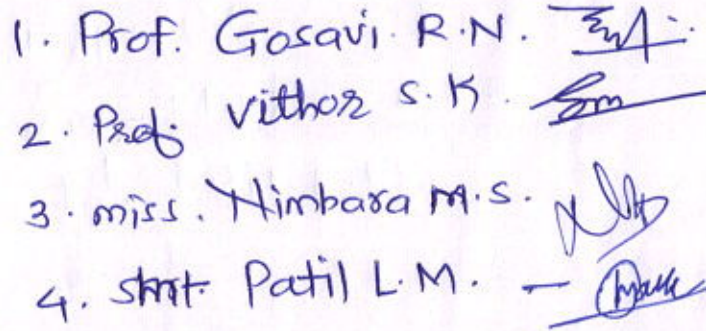 1. Prof. Gosavi. R.N.
2. Prof. Vithor S.K.
3. miss. Nimbara M.S.
4. Smt. Patil L.M. -